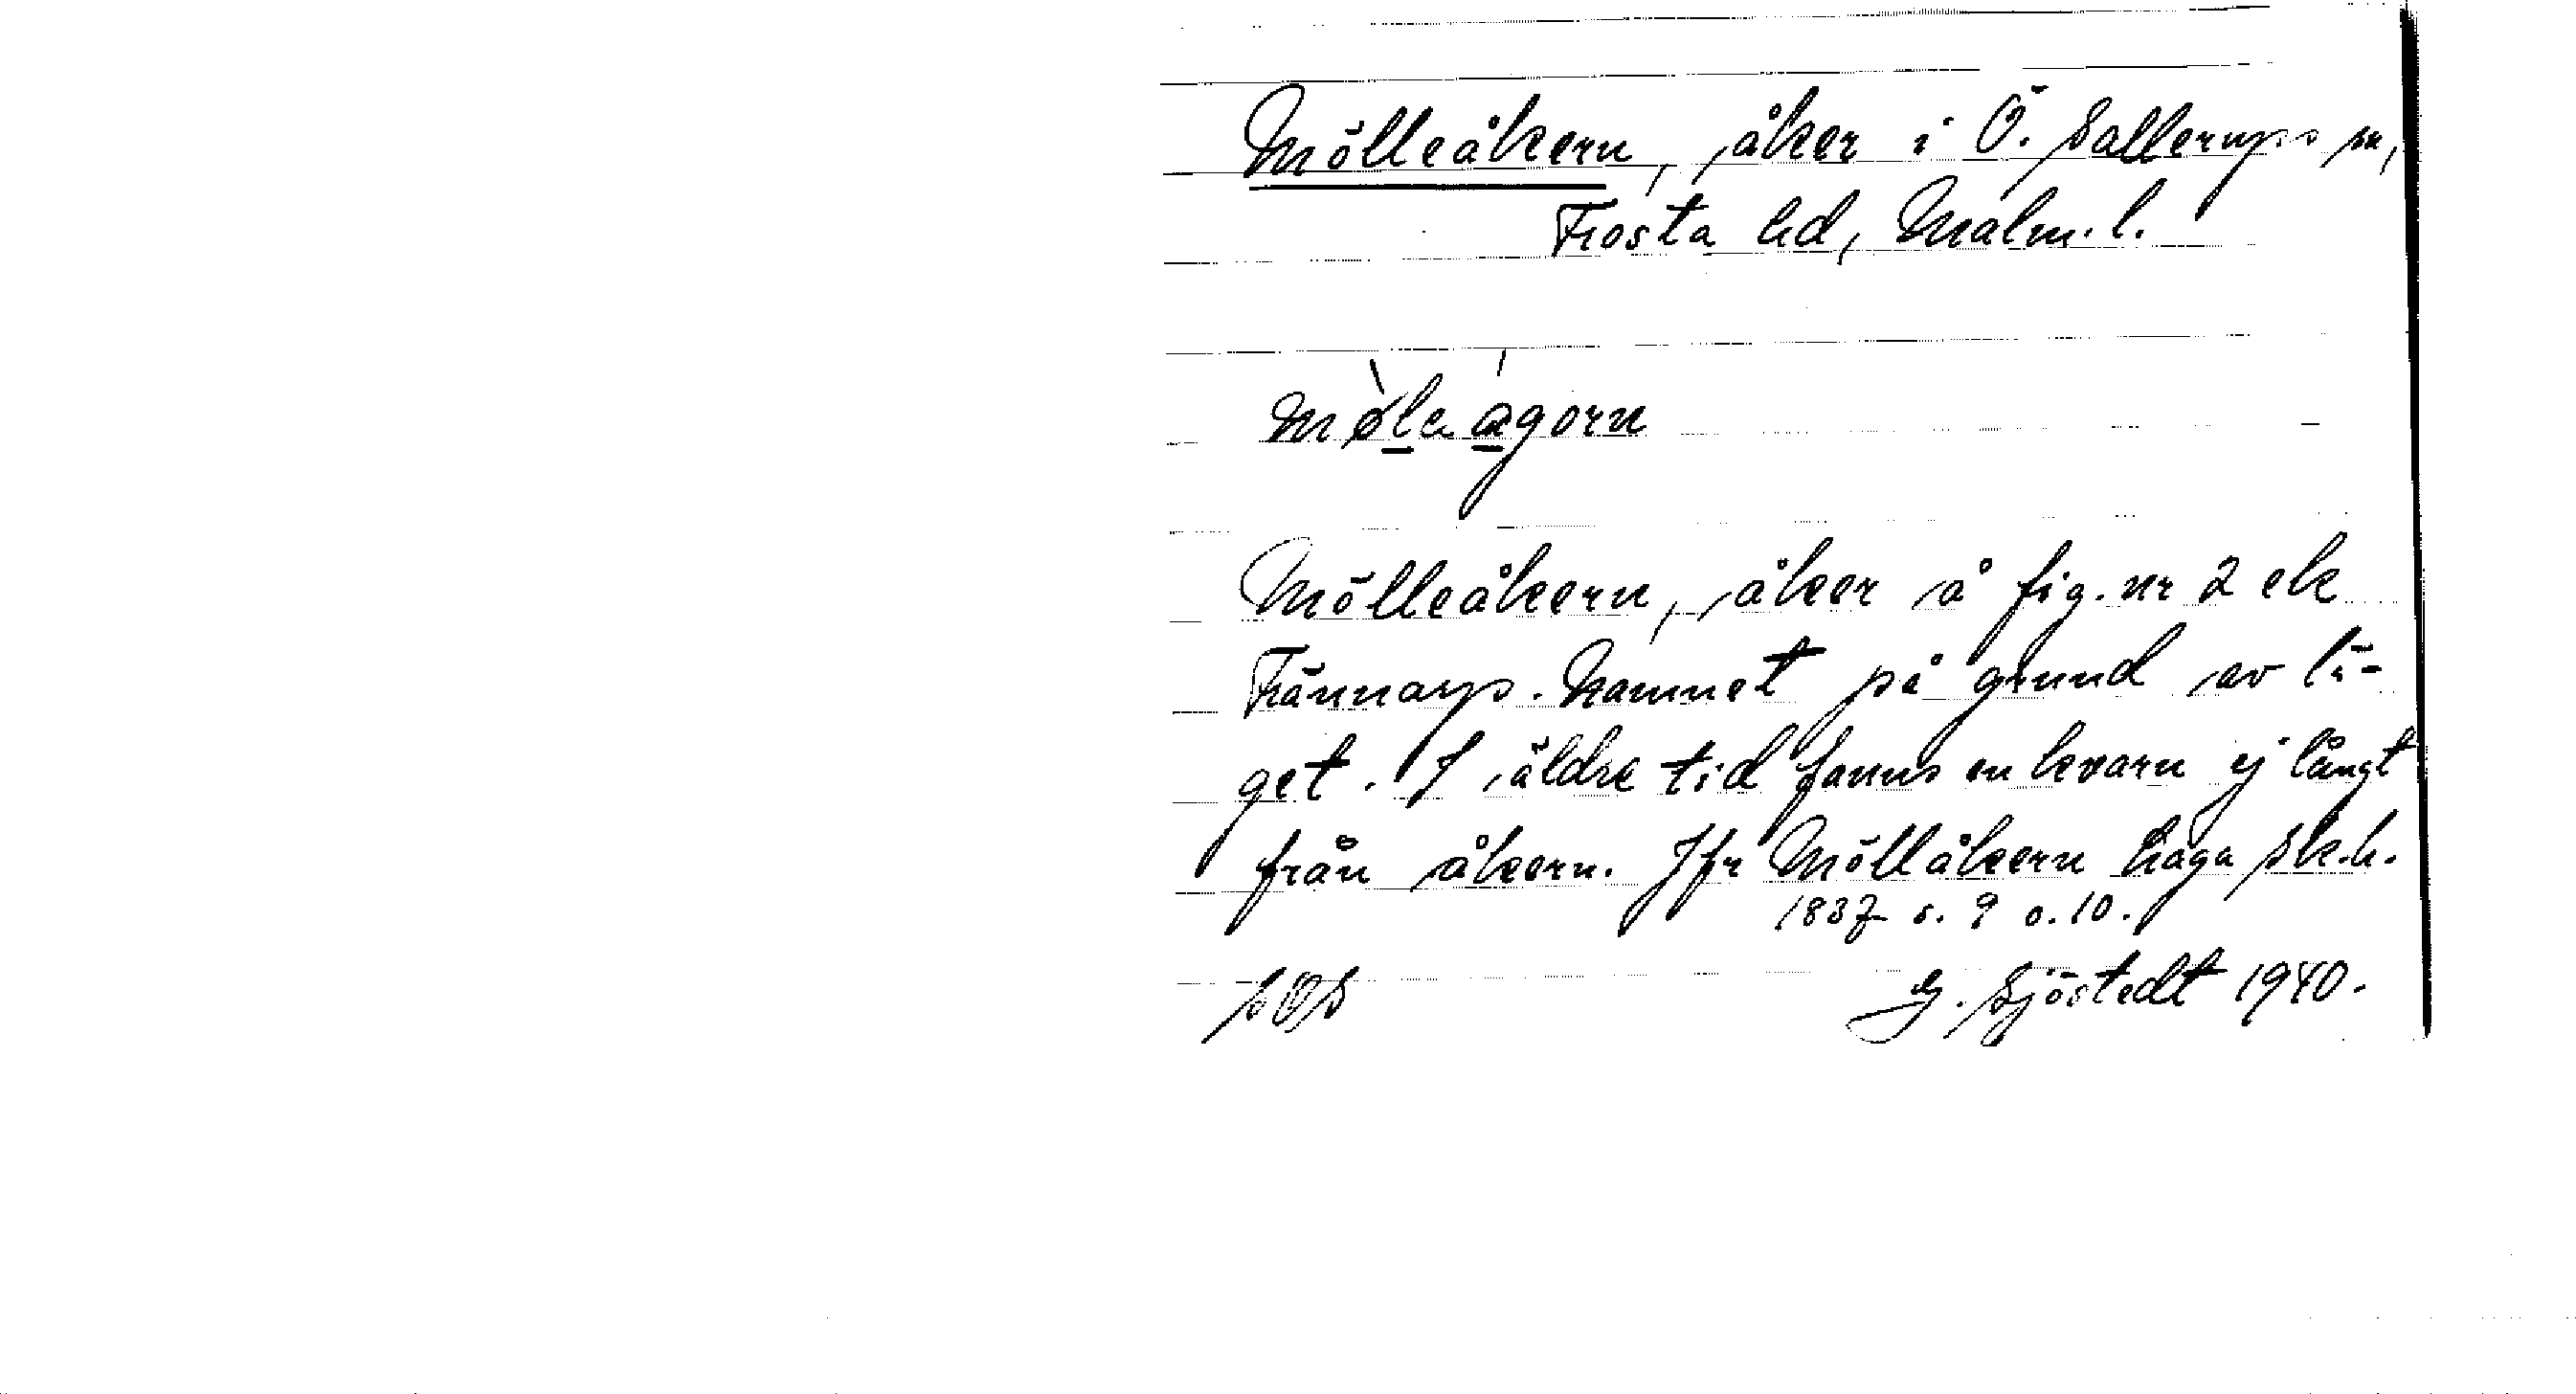 Mölleåkern, åker i Ö. Sallerups sn,
Frosta hd, Malm. l.
møle agorn
Mölleåkern, åker å fig. nr 2 ek
Frännarp. Namnet på grund av lä-
get. I äldre tid fanns en kvarn ej långt
från åkern. Jfr Möllåkern haga sk.h.
1837 s. 9 o. 10.
SOS
G. Sjöstedt 1940.